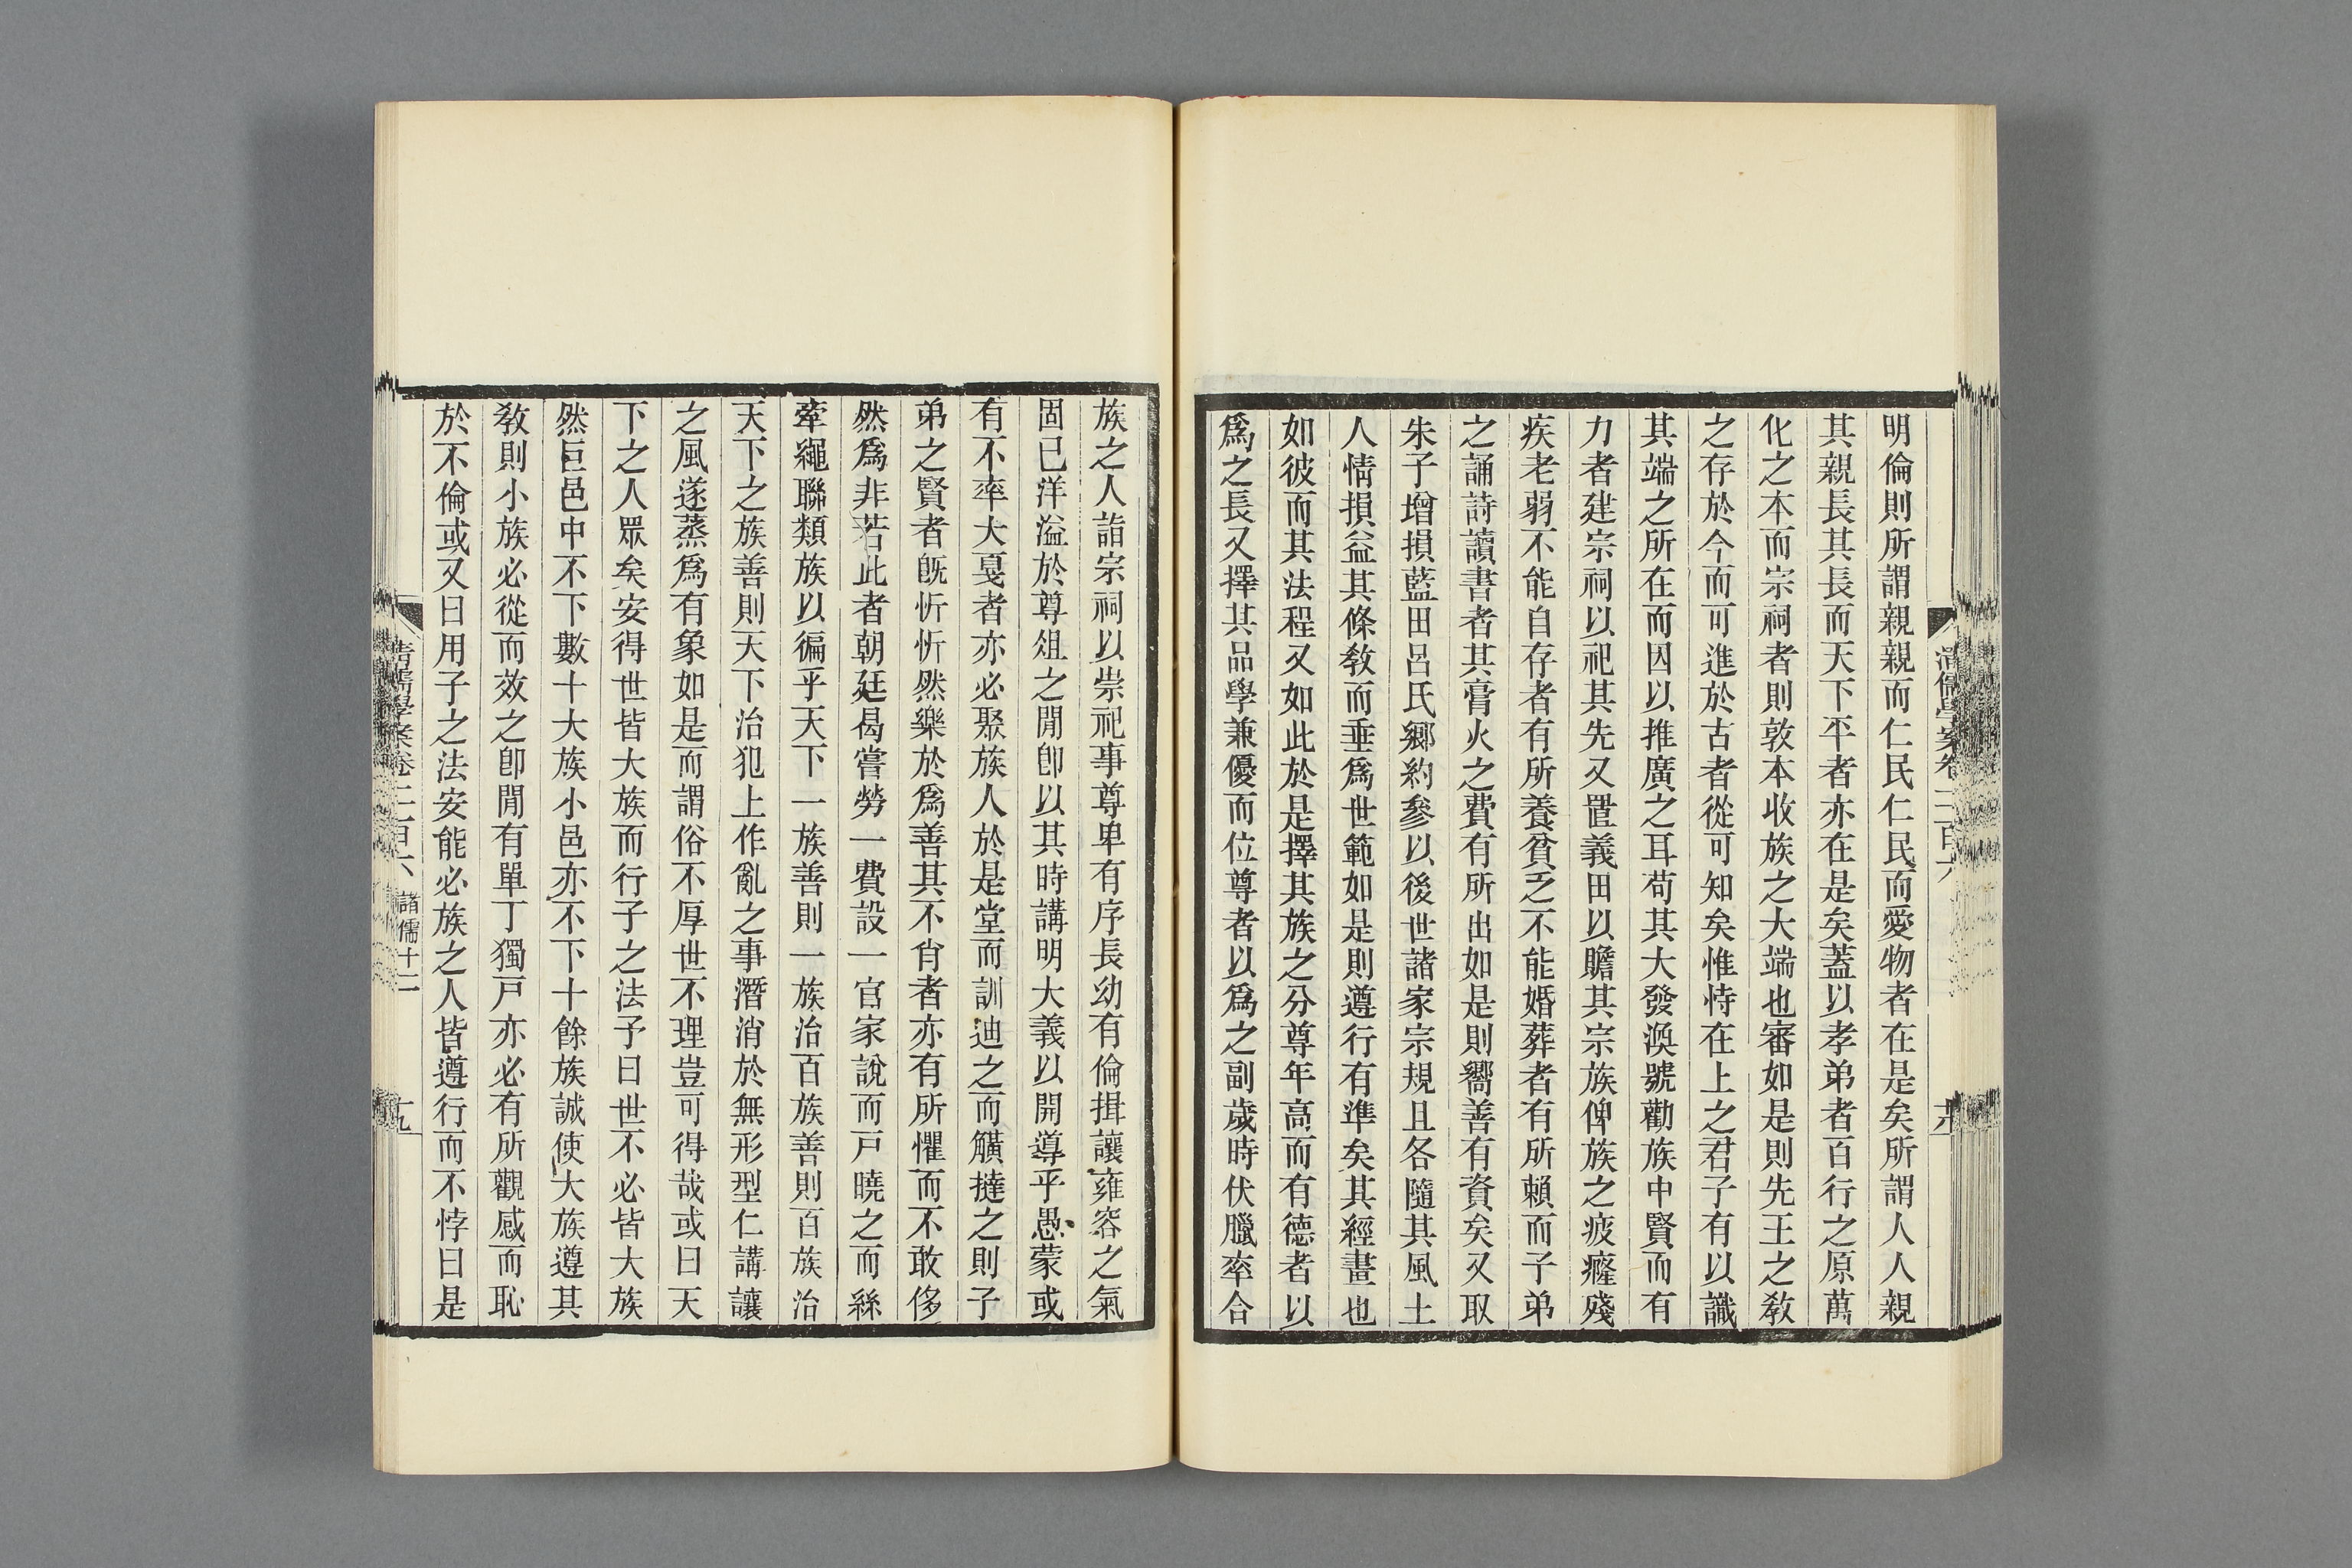 明倫則所謂親親而仁民仁民而愛物者在是矣所謂人人親
其親長其長而天下平者亦在是矣蓋以孝弟者百行之原萬
化之本而宗祠者則敦本收族之大端也審如是則先王之敎
之存於今而可進於古者從可知矣惟恃在上之君子有以讖
其端之所在而因以推廣之耳苟其大發渙號勸族中賢而有
力者建宗祠以祀其先又置義田以贍其宗族俾族之疲癃殘
疾老弱不能自存者有所養貧乏不能婚葬者有所賴而子弟
之誦詩讀書者其膏火之費有所出如是則嚮善有資矣又取
朱子增損藍田呂氏鄉約參以後世諸家宗規且各隨其風土
人情損益其條敎而垂爲世範如是則遵行有準矣其經畫也
如彼而其法程又如此於是擇其族之分尊年高而有德者以
爲之長又擇其品學兼優而位尊者以爲之副歲時伏臘率合
族之人詣宗祠以祟祀事尊卑有序長幼有倫揖讓雍容之氣
固已洋溢於尊俎之閒卽以其時講明大義以開導乎愚蒙或
有不率大戛者亦必聚族人於是堂而訓迪之而觵撻之則子
弟之賢者旣忻忻然樂於爲善其不肖者亦有所懼而不敢侈
然爲非若此者朝廷曷嘗勞一費設一官家說而戸曉之而絲
牽繩聯類族以徧乎天下一族善則一族治百族善則百族治
天下之族善則天下治犯上作亂之事潛消於無形型仁講讓
之風遂蒸爲有象如是而謂俗不厚世不理豈可得哉或曰天
下之人眾矣安得世皆大族而行子之法予曰世不必皆大族
然巨邑中不下數十大族小邑亦不下十餘族誠使大族遵其
敎則小族必從而效之卽閒有單丁獨戸亦必有所觀感而恥
於不倫或又曰用子之法安能必族之人皆遵行而不悖曰是
清儒學案卷二百六 諸儒十二
十九